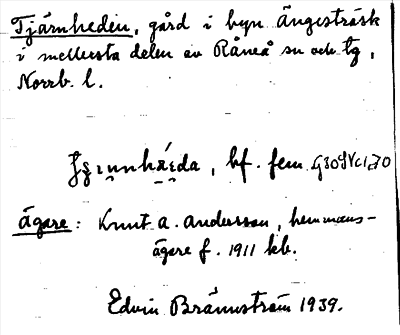 Tjärnheden, gård i byn Ängesträsk
i mellersta delen av Råneå sn och tg,
Norrb. l.
hf. fem.
Ägare: Knut A. Andersson, hemmans-
ägare f. 1911 kb.
Edvin Brännström 1939.